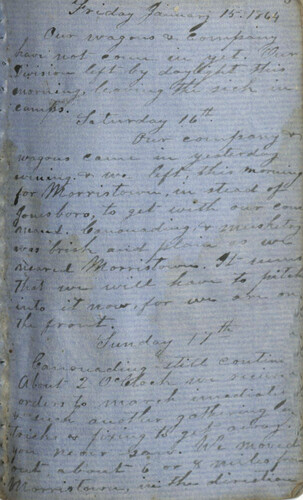 Friday January 15. 1864
Our wagons & company
have not come in yet. Our
Division left by daylight this
morning, leaving the sick in
camps.
Saturday 16th.
Our company &
wagons came in yesterday
evining, & we left this morning
for Morristown, in stead of
Jonesboro, to get with our com
mand. Cannonading, & musketry
was brisk and plain as we
neared Morristown. It seems
that we will have to pitch
into it now, for we are on
the front.
Sunday 17th
Cannonading still contin
About 2 O'Clock we recieved
orders to march
& such another gathering
tricks & fixing to get away.
you never saw. We moved
out about 6 or 8 miles from
Morristown, in the direction